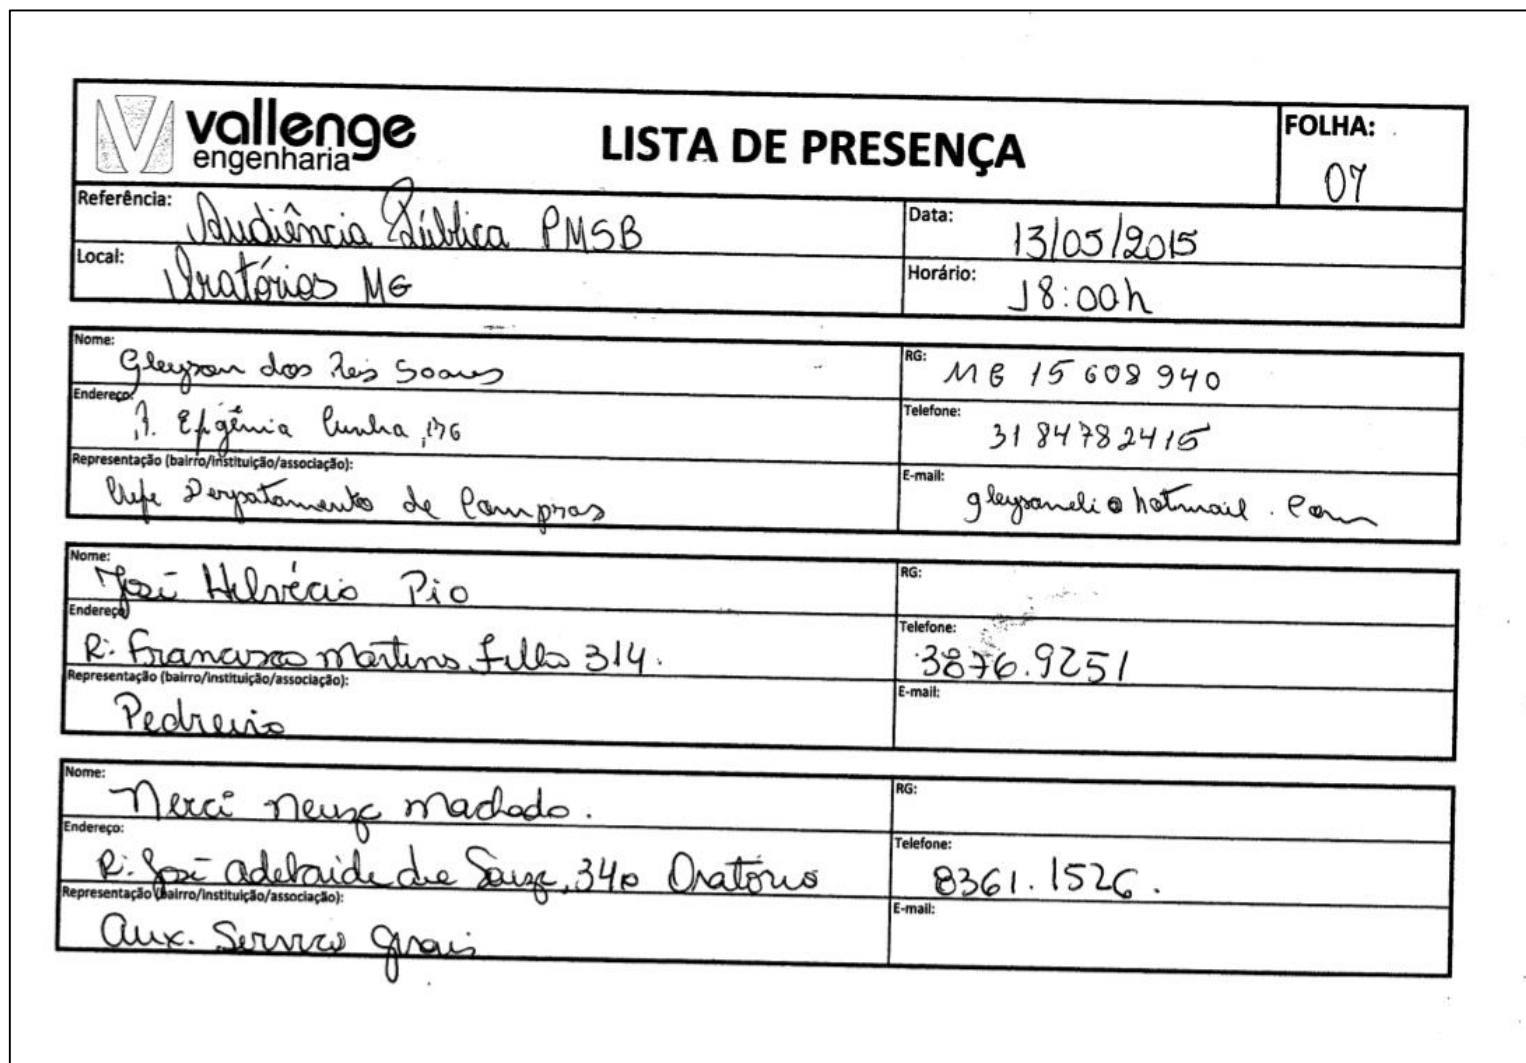 vallenge
engenharia
LISTA DE PRESENÇA
FOLHA:
07
Referência: Audiência Pública PMSB
Data: 13/05/2015
Local: Oratórios MG
Horário: 18:00h
Nome: Gleyson dos Reis Soares
RG: MG 15 608 940
Endereço: R. Efigênia Cunha, 176
Telefone: 31 84782415
Representação (bairro/instituição/associação):
Chefe Derpatamento de Compras
E-mail: gleysoneli@hotmail.com
Nome: José Helvécio Pio
RG:
Endereço: R. Francisco Martins Filho 314.
Telefone: 3876.9251
Representação (bairro/instituição/associação):
Pedreiro
E-mail:
Nome: Nerci Neuza Machado.
RG:
Endereço: R. José Adelaide de Souza, 340 Oratório
Telefone: 8361.1526.
Representação (bairro/instituição/associação):
Aux. Servico gerais
E-mail: